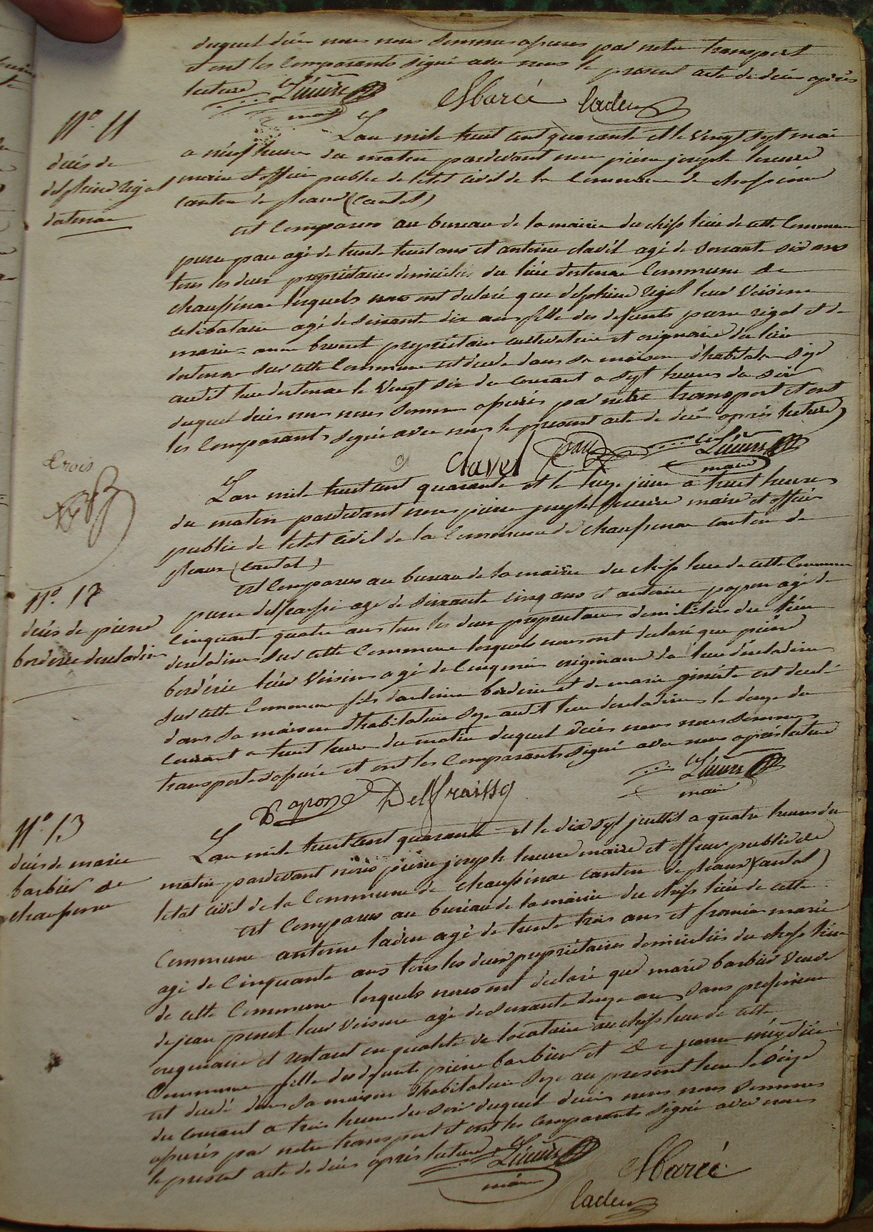 duquel décès nous nous sommes assures par notre transport
et ont les comparants signé avec nous le present acte de décès après
lecture
maire
Marcé ladeu
N° 11
décès de
delphine rigal
dostenac
L'an mil huit cent quarante et le vingt sept mai
a neuf heures du matin pardevant nous pierre joseph
maire et officier public de letat civil de la Commune de chaussenac
canton de pleaux (cantal)
est Comparus au bureau de la mairie du chef lieu de cette Commune
pierre pau agé de trente huit ans et antoine clavel agé de soixante six ans
tous les deux propriétaires domiciliés du lieu dostenac Commune de
chaussenac lesquels nous ont declaré que delphine rigal leur voisine
celibataire agé de soixante dix ans fille des defunts pierre rigal et de
marie anne propriétaire cultivatrice et originaire du lieu
dostenac sur cette Commune est decedé dans sa maison d'habitation size
audit lieu dostenac le vingt six du courant a sept heures du soir
duquel décès nous nous sommes assurés par notre transport et ont
les Comparants signé avec nous le present acte de décès après lecture
clavel pau
maire
L'an mil huit cent quarante et le juin a huit heures
du matin pardevant nous pierre joseph maire et officier
public de letat civil de la Commune de chaussenac canton de
pleaux (cantal)
N° 12
décès de pierre
borderie
est Comparus au bureau de la mairie du chef lieu de cette Commune
pierre delfraissy agé de soixante cinq ans et antoine papon agé de
cinquante quatre ans tous les deux propriétaires domiciliés du lieu
sur cette Commune lesquels nous ont declaré que pierre
borderie leur voisin agé de originaire du lieu
sur cette Commune fils dantoine borderie et de marie est decedé
dans sa maison d'habitation size audit lieu le douze du
courant a huit heures du matin duquel décès nous nous sommes
transporté assuré et ont les Comparants signé avec nous après lecture
Papon Delfraissy
maire
N° 13
décès de marie
barbier de
chaussenac
L'an mil huit cent quarante et le dix sept juillet a quatre heures du
matin pardevant nous pierre joseph maire et officier public de
letat civil de la Commune de chaussenac canton de pleaux (cantal)
est Comparus au bureau de la mairie du chef lieu de cette
Commune antoine ladeu agé de trente trois ans et marcé
agé de cinquante ans tous les deux propriétaires domiciliés du chef lieu
de cette Commune lesquels nous ont declaré que marie barbier veuve
de jean leur voisine agé de soixante douze ans sans profession
originaire et restant en qualité de locataire au chef lieu de cette
Commune fille des defunts pierre barbier et de jeanne
est decedé dans sa maison d'habitation size au present lieu le seize
du courant a trois heures du soir duquel décès nous nous sommes
assurés par notre transport et ont les Comparants signé avec nous
le present acte de décès après lecture
maire
Marcé
ladeu